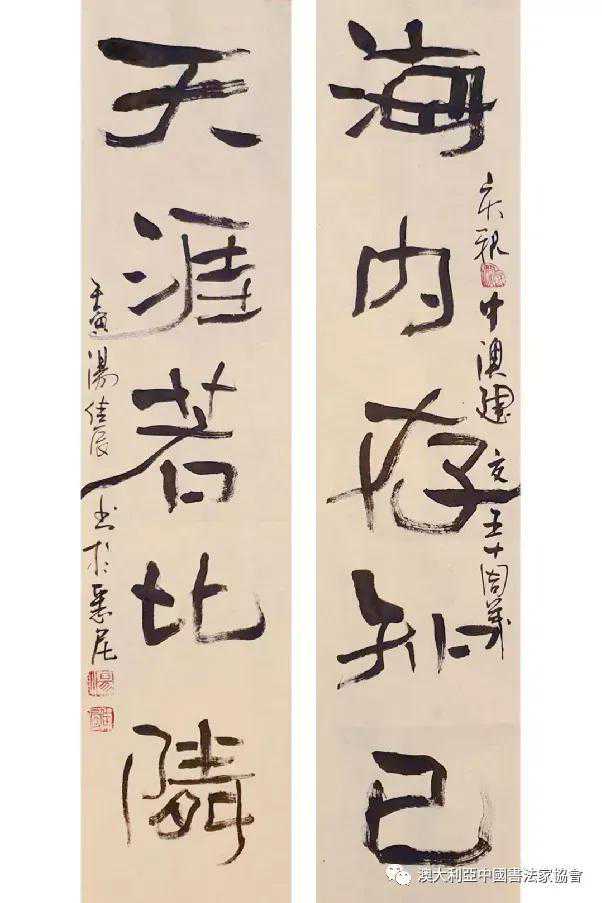 海内存知己
庆祝中澳建交五十周年
天涯若比隣
壬寅湯佳辰书於悉尼
澳大利亞中國書法家協會